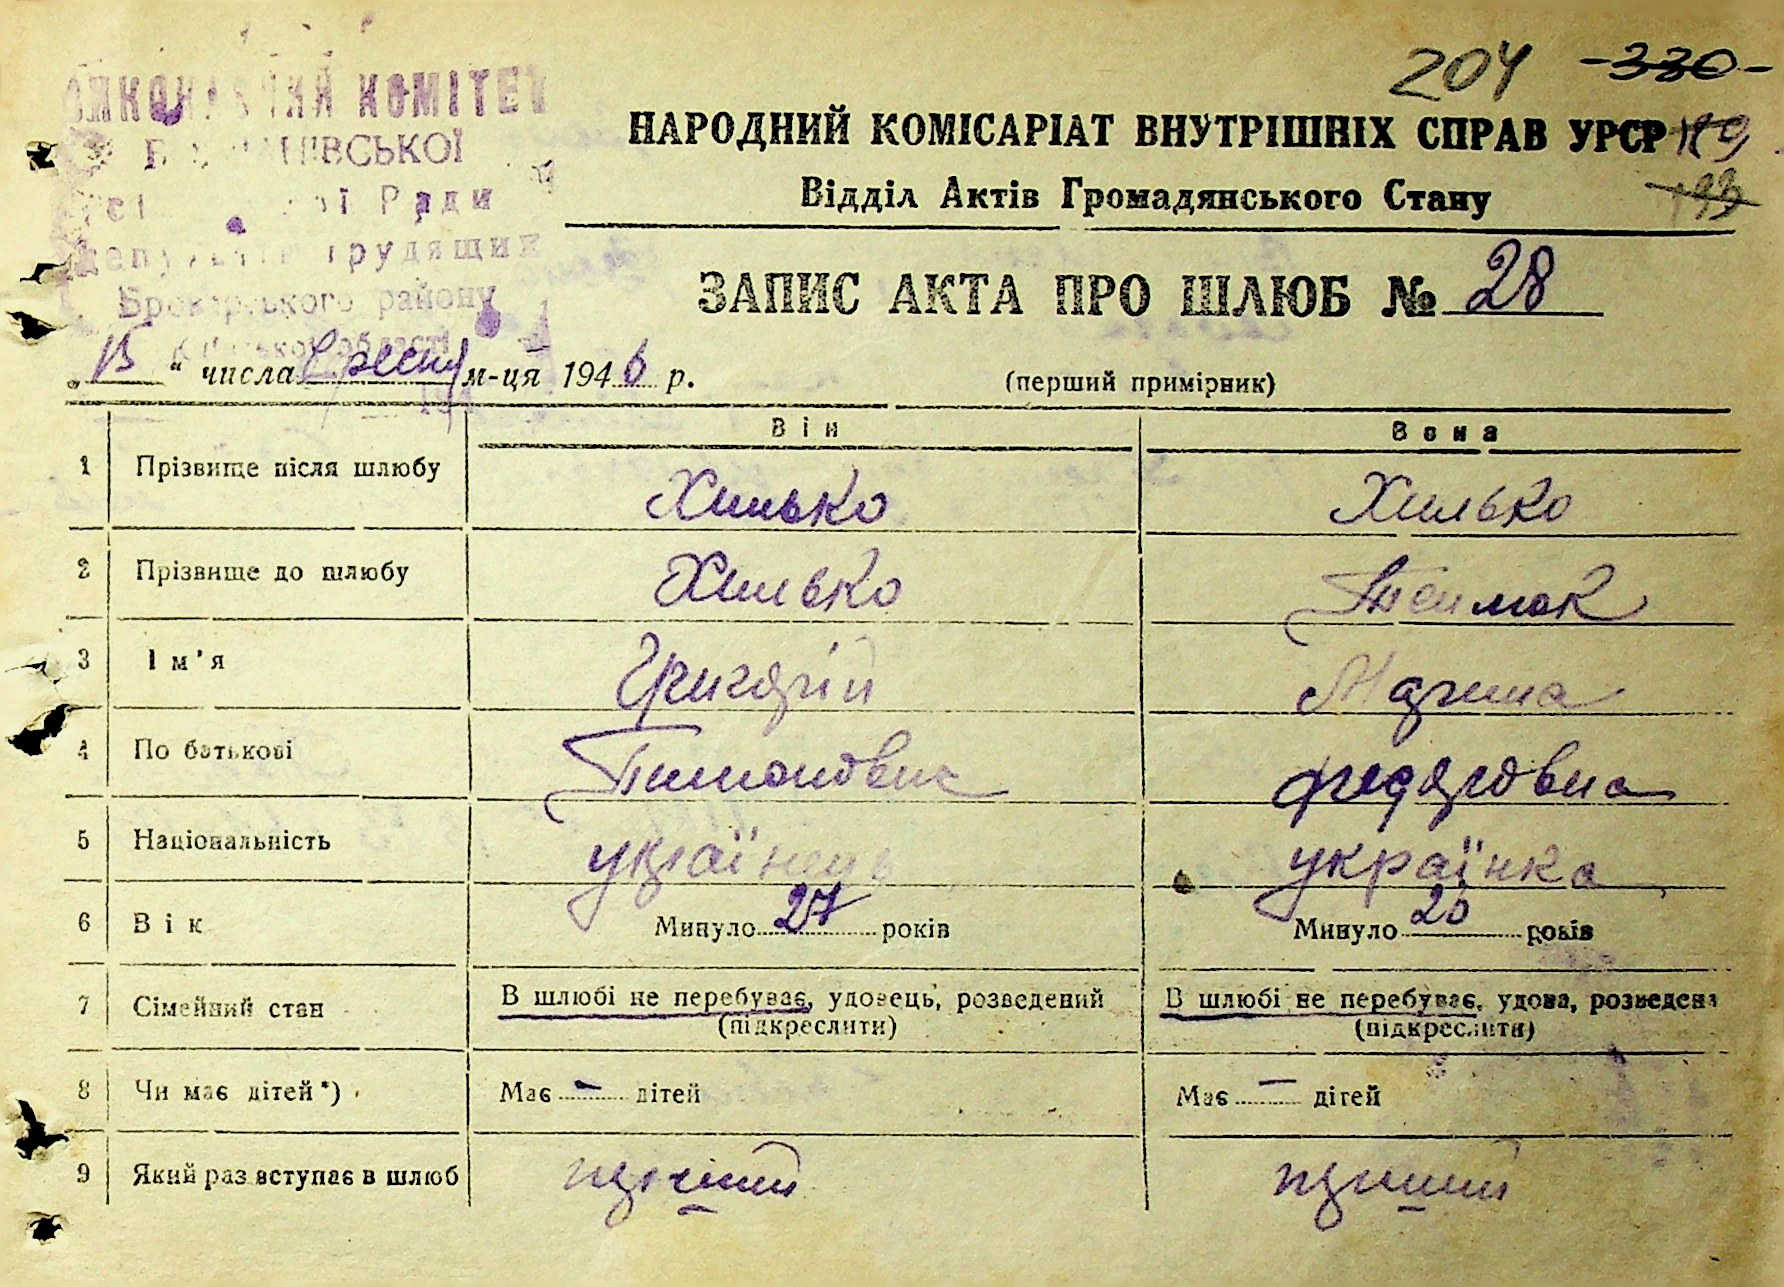 204 330
ВИКОНАВЧИЙ КОМІТЕТ
НАРОДНИЙ КОМІСАРІАТ ВНУТРІШНІХ СПРАВ УРСР
Відділ Актів Громадянського Стану
Ради
депутатів трудящих
Броварського району
Київської області
ЗАПИС АКТА ПРО ШЛЮБ № 28
„15“ числа вересня м-ця 1946 р.
(перший примірник)
Він Вона
1 Прізвище після шлюбу Хилько Хилько
2 Прізвище до шлюбу Хилько
3 Ім'я Григорій Марина
4 По батькові Тимонович Федоровна
5 Національність українець українка
6 Вік Минуло 27 років Минуло 20 років
7 Сімейний стан В шлюбі не перебуває, удовець, розведений В шлюбі не перебуває, удова, розведена
(підкреслити) (підкреслити)
8 Чи має дітей*) Має – дітей Має – дітей
9 Який раз вступає в шлюб перший перший